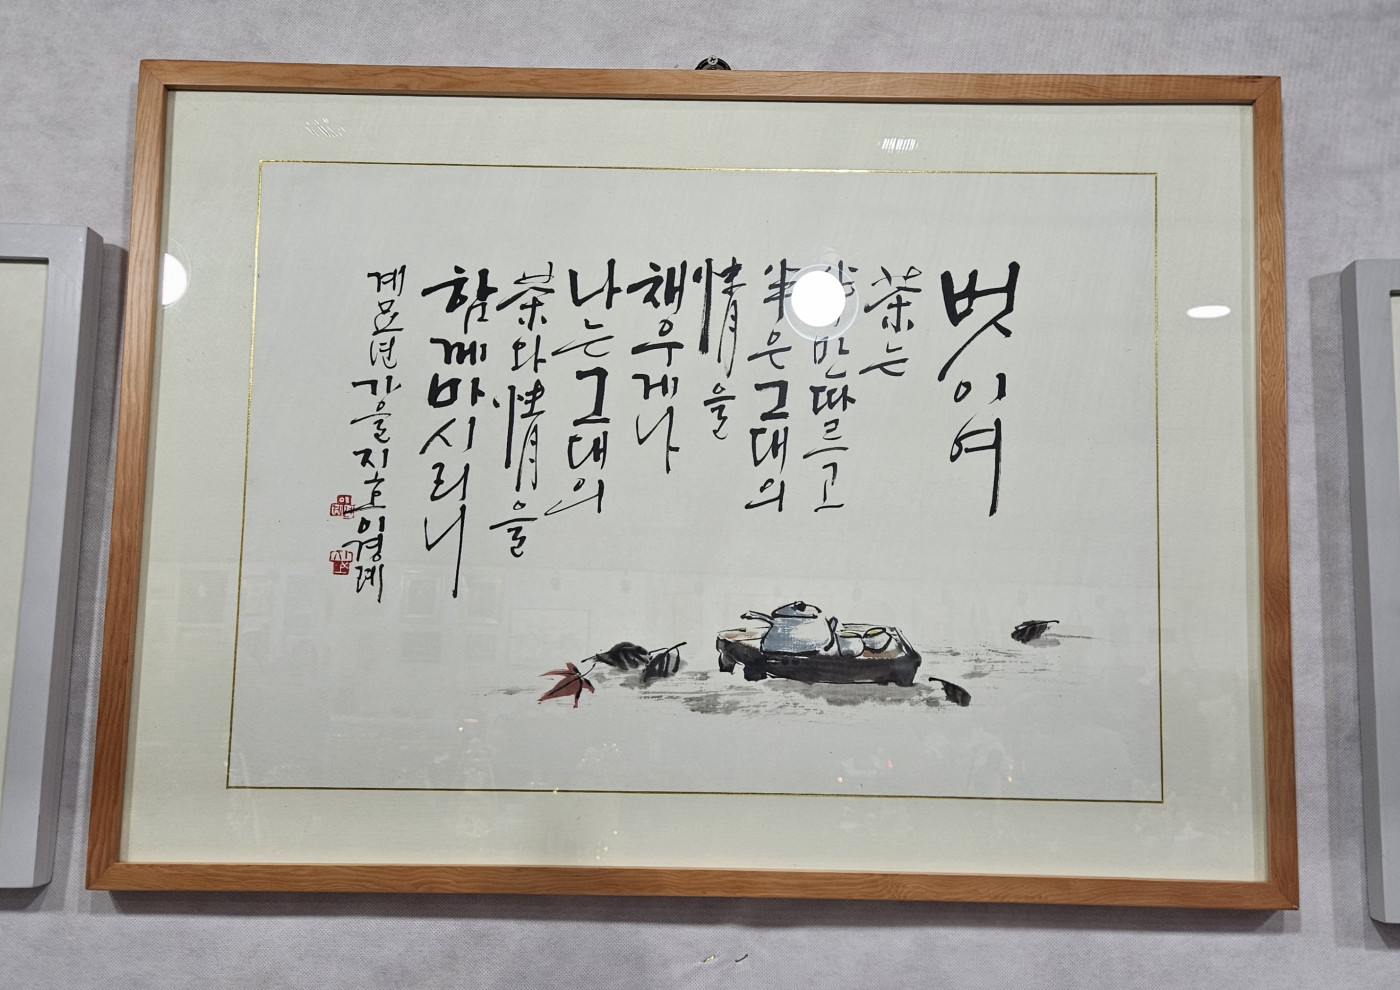 벗이여
茶는
半만 따르고
半은 그대의
情을
채우게나
나는 그대의
茶와 情을
함께 마시리니
계묘년 가을 지호 이경례